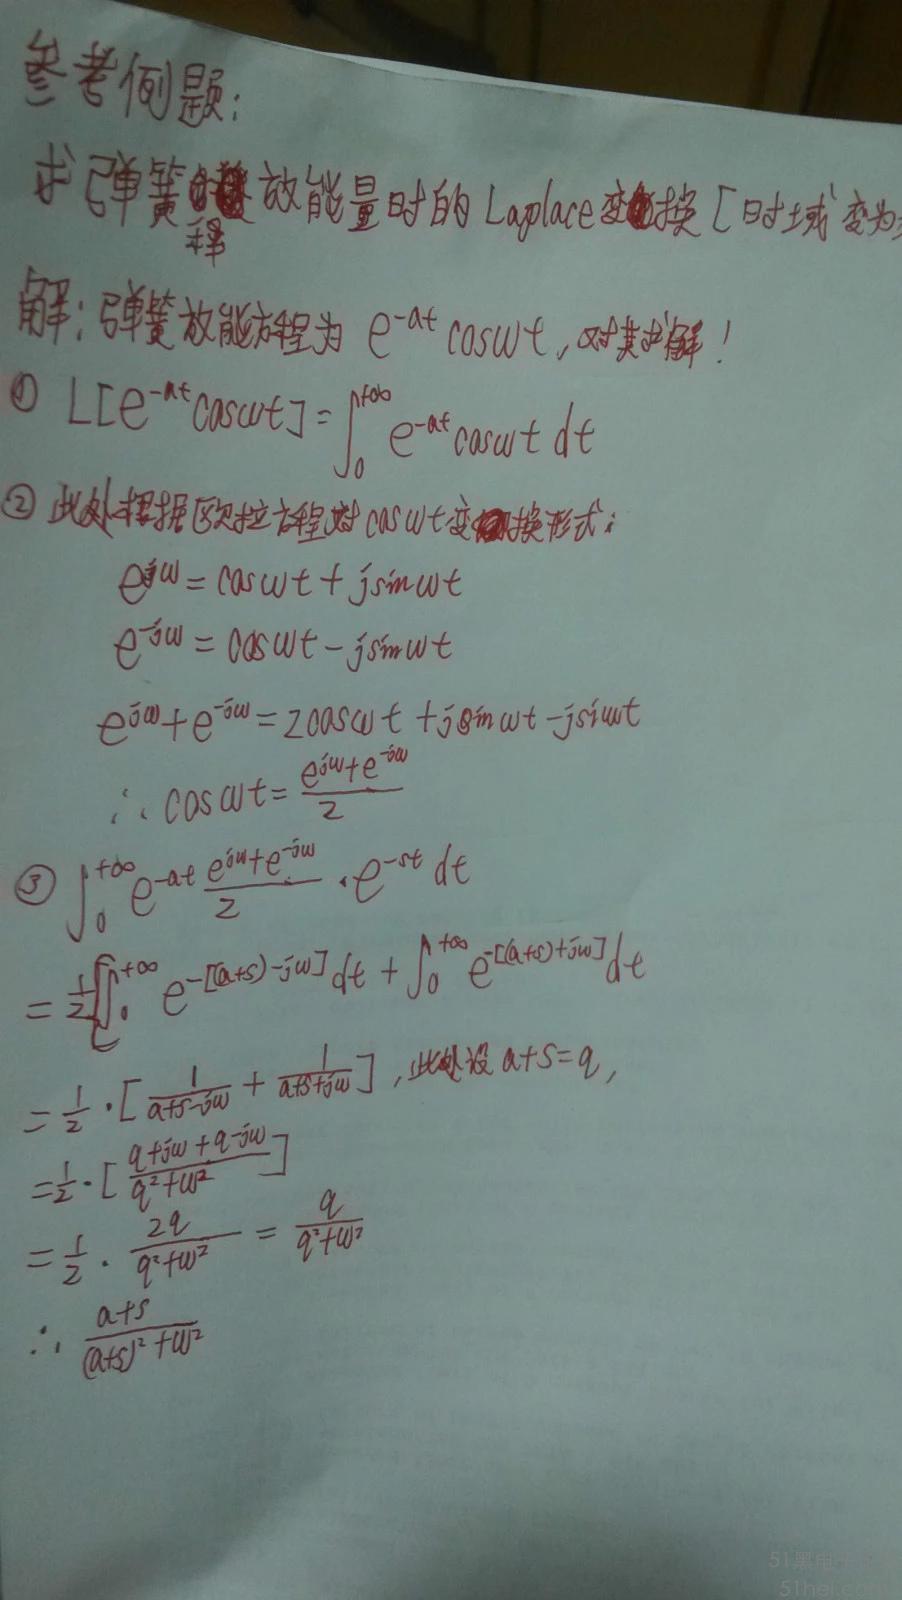 参考例题:
求弹簧释放能量时的Laplace变换[时域变为
解:弹簧放能方程为 e^-at coswt,对其求解!
① L[e^-at coswt]=∫_0^+∞ e^-at coswt dt
② 此处根据欧拉方程对coswt变换形式:
e^jw = coswt + jsinwt
e^-jw = coswt - jsinwt
e^jw + e^-jw = 2coswt + jsinwt - jsinwt
∴ coswt = (e^jw + e^-jw)/2
③ ∫_0^+∞ e^-at (e^jw + e^-jw)/2 · e^-st dt
= 1/2[∫_0^+∞ e^-[(a+s)-jw] dt + ∫_0^+∞ e^-[(a+s)+jw] dt
= 1/2 · [1/(a+s-jw) + 1/(a+s+jw)],此处设a+s=q,
= 1/2 · [(q+jw+q-jw)/(q²+w²)]
= 1/2 · 2q/(q²+w²) = q/(q²+w²)
∴ (a+s)/((a+s)²+w²)
51黑电
51hei.com